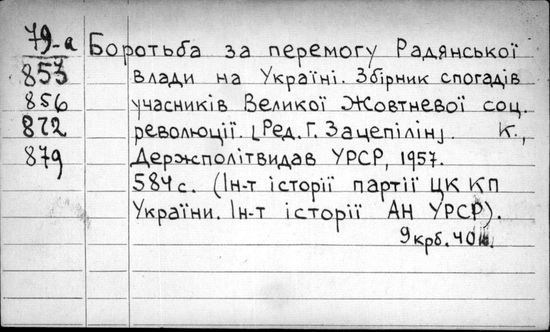 79-а
853
856
872
879
Боротьба за перемогу Радянської
влади на Україні. Збірник спогадів
учасників Великої Жовтневої соц.
революції. [Ред. Г. Зацепілін]. К.,
Держполітвидав УРСР, 1957.
584 с. (Ін-т історії партії ЦК КП
України. Ін-т історії АН УРСР).
9 крб. 40